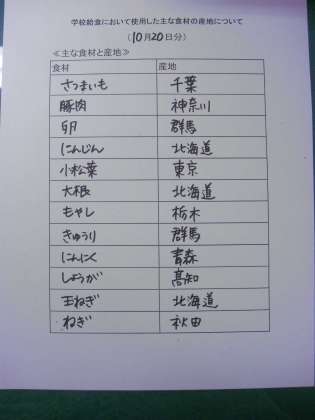 学校給食において使用した主な食材の産地について
(10月20日分)
≪主な食材と産地≫
食材 産地
さつまいも 千葉
豚肉 神奈川
卵 群馬
にんじん 北海道
小松菜 東京
大根 北海道
もやし 栃木
きゅうり 群馬
にんにく 青森
しょうが 高知
玉ねぎ 北海道
ねぎ 秋田